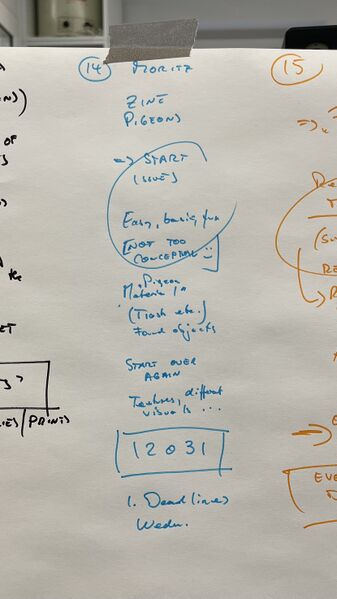 14 MORITZ
ZINE
PIGEONS
=> START
(ISSUES)
Easy, basic, fun
[NOT TOO
CONCEPTUAL :)]
"Pigeon
Material"
(Trash etc.)
Found objects
START OVER
AGAIN
Textures, different
visuals ...
12031
1. Deadlines
Wedn.
OF
ET
IES/PRINTS
15
=>
Re
(Su
RE
EVE